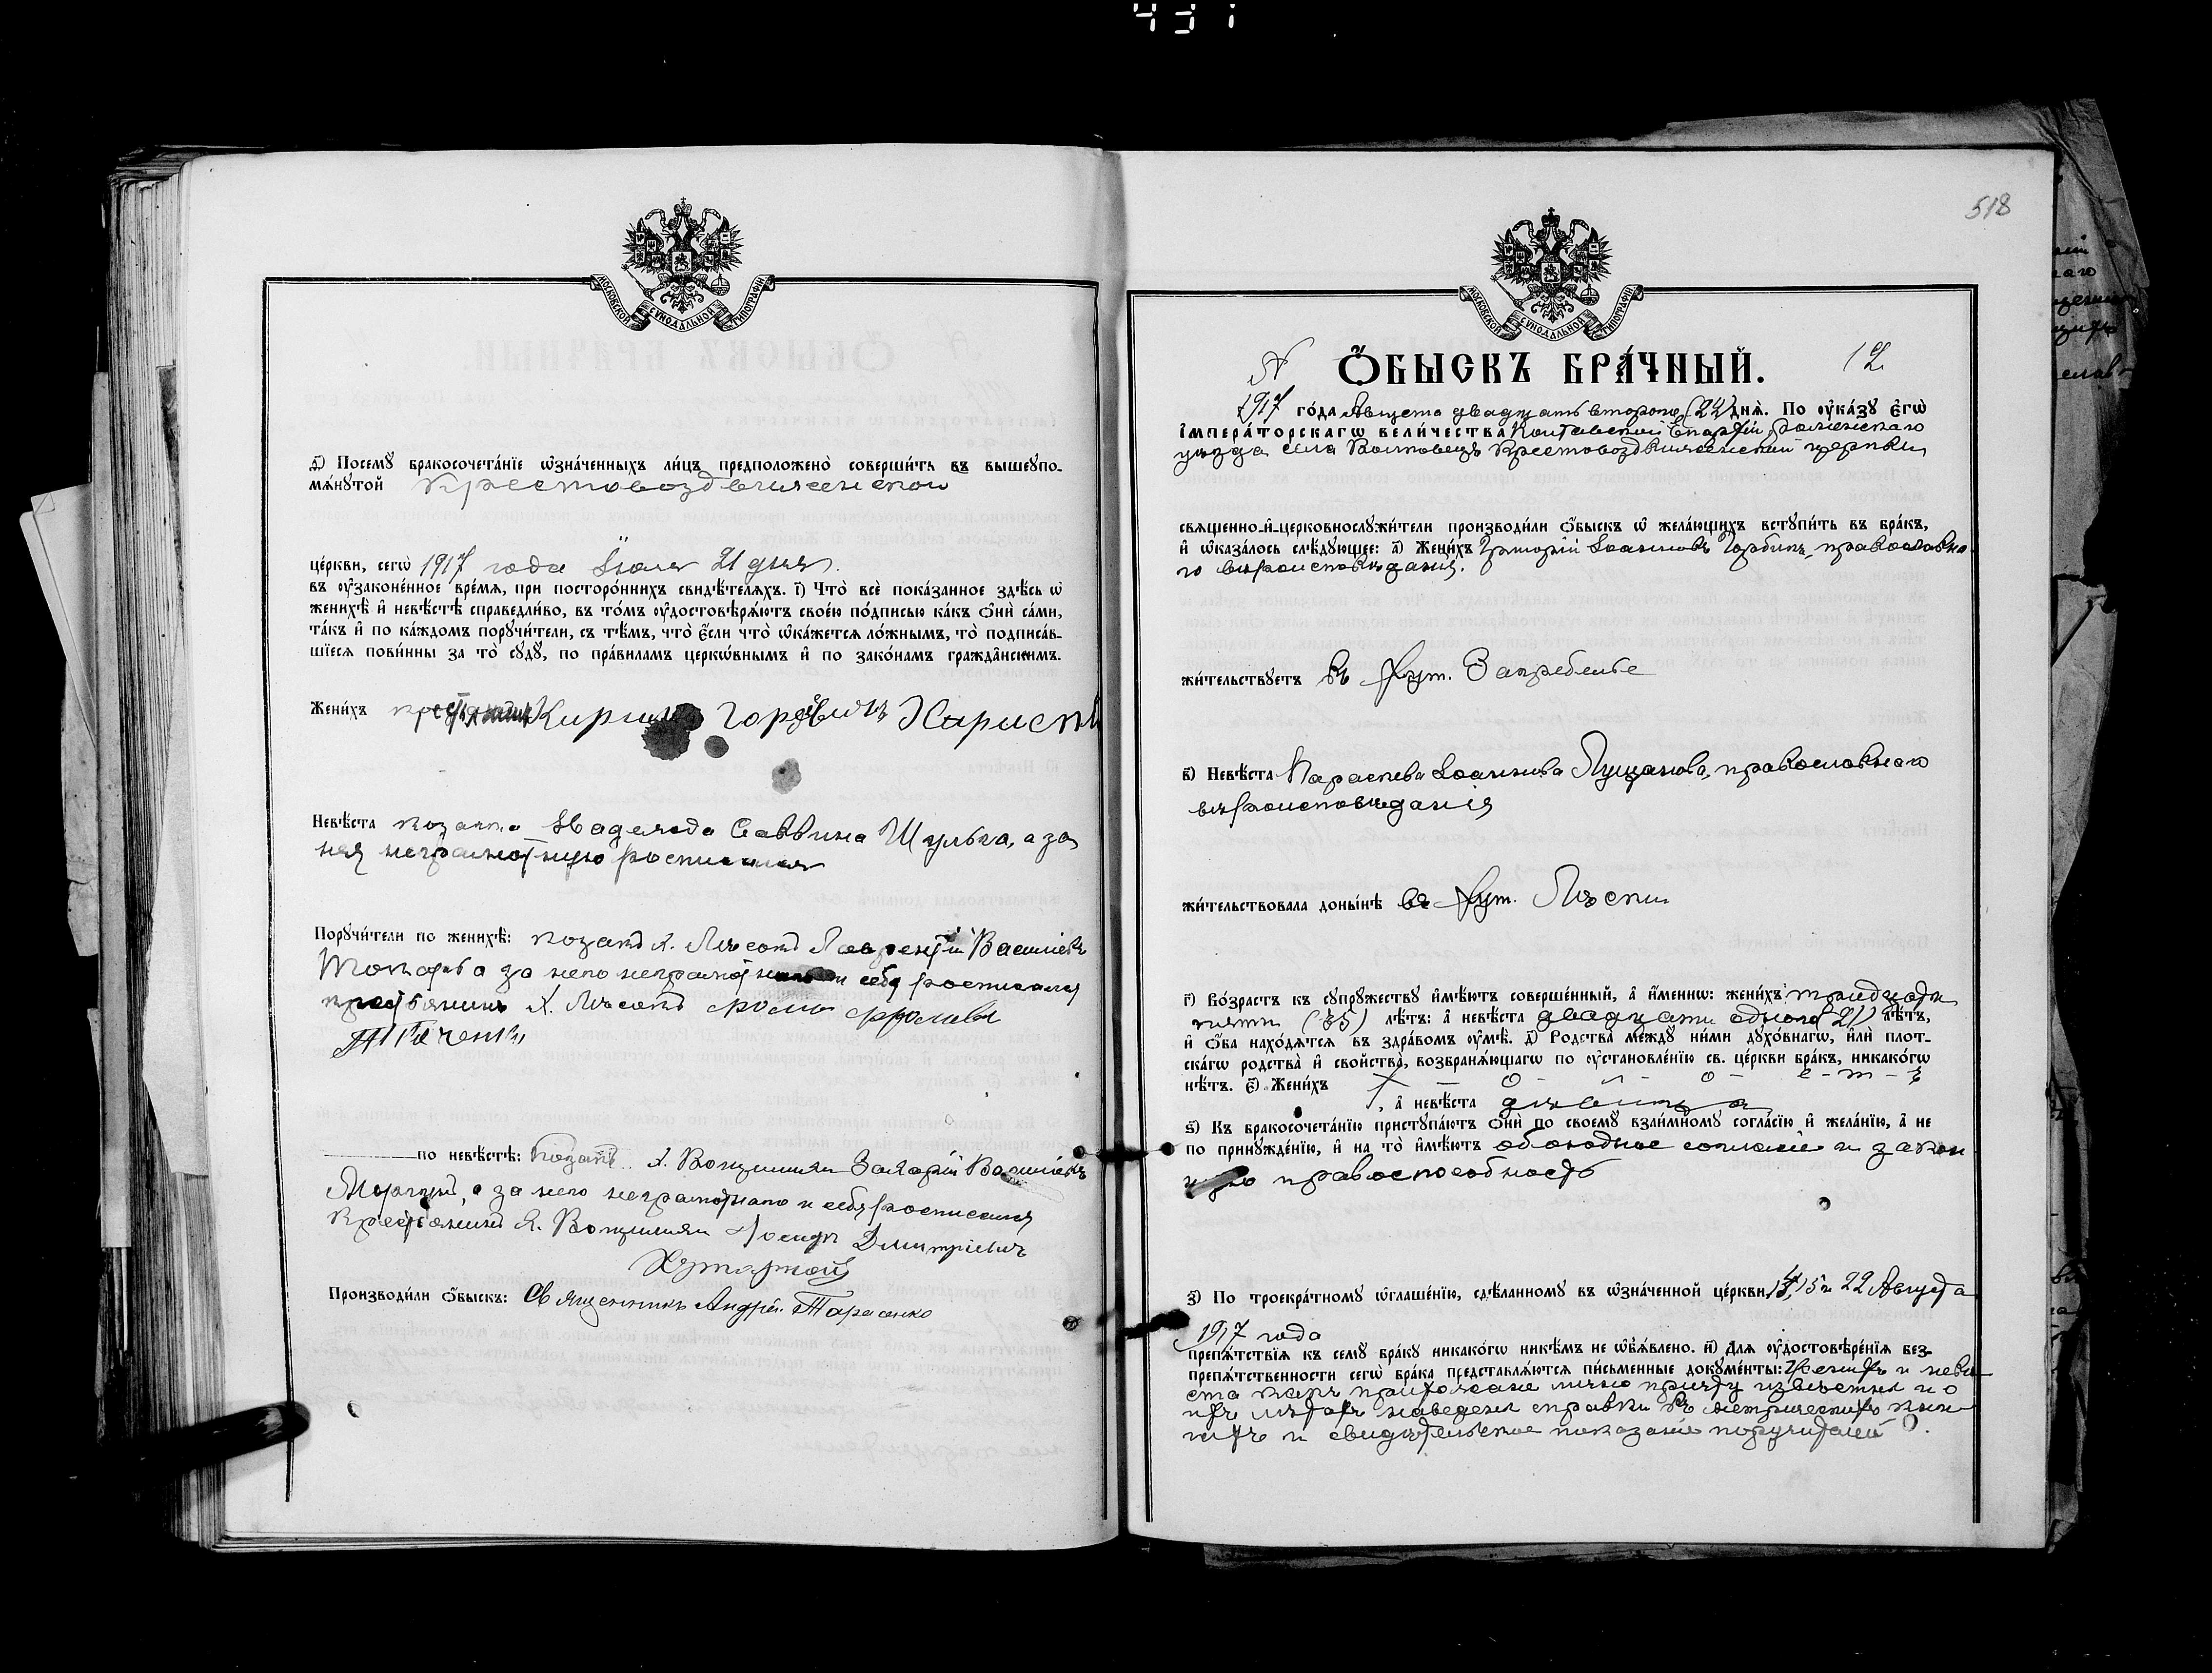 431
МОСКОВСКОЙ СУНОДАЛЬНОЙ ТИПОГРАФІИ
д҃) Посемꙋ бракосочета́нїе ѡ҆зна́ченныхъ ли́цъ предположено̀ соверши́ть въ вышеꙋпо-
мѧ́нꙋтой Крестовоздвиженской
це́ркви, сегѡ̀ 1917 года Іюля 21 дня.
въ ᲂу҆зако́ненное вре́мѧ, при посторо́ннихъ свидѣ́телѧхъ. і҃) Что̀ всѐ пока́занное здѣ́сь ѡ҆
женихѣ̀ и҆ невѣ́стѣ справедли́во, въ то́мъ ᲂу҆достовѣрѧ́ютъ свое́ю по́дписью ка́къ ѻ҆нѝ са́ми,
та́къ и҆ по ка́ждомъ порꙋчи́тели, съ тѣ́мъ, что̀ є҆́сли что̀ ѡ҆ка́жетсѧ ло́жнымъ, то̀ подписа́в-
шїесѧ пови́нны за то̀ сꙋдꙋ̀, по пра́виламъ церкѡ́внымъ и҆ по зако́намъ гражда̂нскимъ.
Жени́хъ Гордѣевичъ
Невѣ́ста козачка Надежда Саввина Шульга, а за
нея неграмотную росписался
Порꙋчи́тели по женихѣ̀: козакъ х. Лѣсокъ Лаврентій Васильевъ
за него неграмотнаго и себя росписался
крестьянинъ х. Лѣсокъ
Ткаченко
по невѣ́стѣ: Козакъ х. Захарій Васильевъ
а за него неграмотнаго и себя росписался
Крестьянинъ х. Іосифъ Дмитріевичъ
Производи́ли ѻ҆́быскъ: Священникъ Андрей Тарасенко
518
МОСКОВСКОЙ СУНОДАЛЬНОЙ ТИПОГРАФІИ
N Ѻ҆́БЫСКЪ БРА́ЧНЫЙ. 12
1917 го́да Августа двадцать второго (22) днѧ̀. По ᲂу҆ка́зꙋ є҆гѡ̀
і҆мпера́торскагѡ вели́чества Полтавской Епархіи, Роменскаго
уѣзда села Крестовоздвиженской церкви
свѧще́нно-и҆-церковнослꙋжи́тели производи́ли ѻ҆́быскъ ѡ҆ жела́ющихъ встꙋпи́ть въ бра́къ,
и҆ ѡ҆каза́лось слѣ́дꙋющее: а҃) Жени́хъ Григорій Іоанновъ Горбикъ, православна-
го вѣроисповѣданія.
жи́тельствꙋетъ въ хут. Загребелье
в҃) Невѣ́ста Параскева Іоаннова православнаго
вѣроисповѣданія
жи́тельствовала доны́нѣ въ хут. Лѣски
г҃) Во́зрастъ къ сꙋпрꙋ́жествꙋ и҆мѣ́ютъ соверше́нный, а҆ и҆́менно: жени́хъ тридцати
пяти (35) лѣ́тъ: а҆ невѣ́ста двадцати одного (21) лѣ́тъ,
и҆ ѻ҆́ба нахо́дѧтсѧ въ здра́вомъ ᲂу҆мѣ̀. д҃) Родства̀ ме́ждꙋ ни́ми дꙋхо́внагѡ, и҆лѝ плот-
ска́гѡ родства̀ и҆ сво́йства, возбранѧ́ющагѡ по ᲂу҆становле́нїю св. це́ркви бра́къ, никако́гѡ
нѣ́тъ. є҃) Жени́хъ х – о – л – о – с – т – ъ
, а҆ невѣ́ста дѣвица
ѕ҃) Къ бракосочета́нїю пристꙋпа́ютъ ѻ҆нѝ по своемꙋ̀ взаи́мномꙋ согла́сїю и҆ жела́нїю, а҆ не
по принꙋжде́нїю, и҆ на то̀ и҆мѣ́ютъ обоюдное согласіе и закон
ную правоспособность
з҃) По троекра́тномꙋ ѡ҆глаше́нїю, сдѣ́ланномꙋ въ ѡ҆зна́ченной це́ркви 15 и 22 Августа
1917 года
препѧ́тствїѧ къ семꙋ̀ бра́кꙋ никако́гѡ никѣ́мъ не ѡ҆б̾ѧ́влено. и҃) Длѧ ᲂу҆достовѣре́нїѧ без-
препѧ́тственности сегѡ̀ бра́ка представлѧ́ютсѧ пи́сьменные докꙋме́нты: Женихъ и невѣ-
ста какъ прихожане лично причту извѣстны и о
ихъ лѣтахъ наведены справки въ метрическихъ кни-
гахъ и свидѣтельское показаніе поручителей.